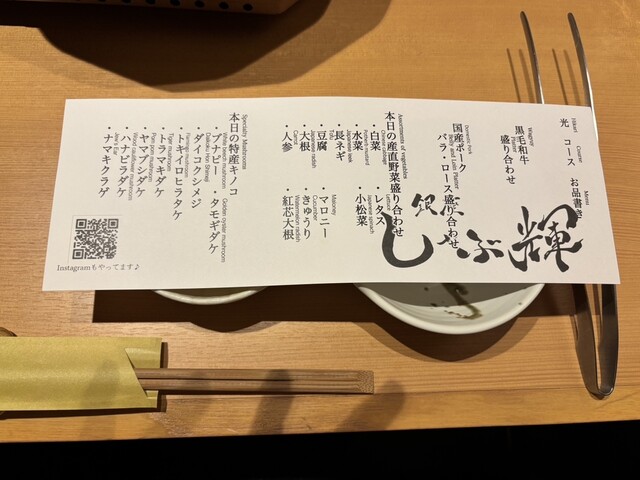 光 コース お品書き
Hikari Course Menu
黒毛和牛
盛り合わせ
Wagyu
Platter
国産ポーク
バラ・ロース盛り合わせ
Domestic Pork
Belly and Loin Platter
本日の産直野菜盛り合わせ
Assortment of vegetables
・白菜 レタス
Chinese cabbage Lettuce
・水菜 ・小松菜
Potherb mustard Japanese spinach
・長ネギ
Japanese leek
・豆腐 ・マロニー
Tofu Maroney
・大根 ・きゅうり
Japanese radish Cucumber
・人参 ・紅芯大根
Carrot Watermelon radish
本日の特産キノコ
Specialty Mushrooms
・ブナピー ・タモギダケ
White beech mushroom Golden oyster mushroom
・ダイコクシメジ
Daikoku Hon Shimeji
・ムキイロヒラタケ
Flamingo mushroom
・トラマキダケ
Tiger mushroom
・ヤマブシダケ
Pom pom mushroom
・ハナビラダケ
Wood cauliflower mushroom
・ナマキクラゲ
Jew's Ear
銀座
しゃぶ輝
Instagramもやってます♪